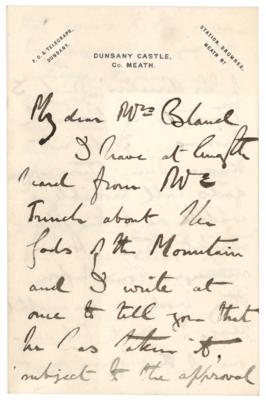 P.O. & TELEGRAPH,
DUNSANY.
DUNSANY CASTLE,
CO. MEATH.
STATION, DRUMREE,
MEATH RY
My dear Mrs Bland
I have at length
heard from Mr
Trench about the
Gods of the Mountain
and I write at
once to tell you that
he has taken it,
subject to the approval